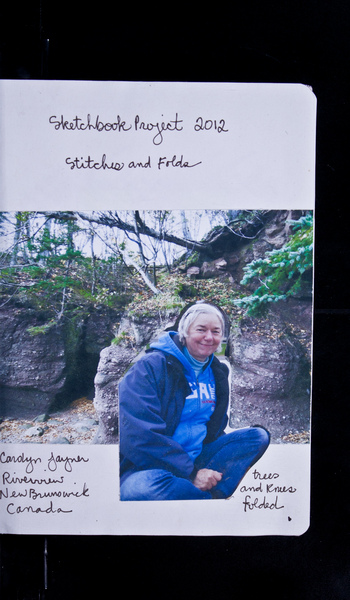 Sketchbook Project 2012
Stitches and Folds
GAP
Carolyn Jayner
Riverview
New Brunswick
Canada
trees
and Knees
folded